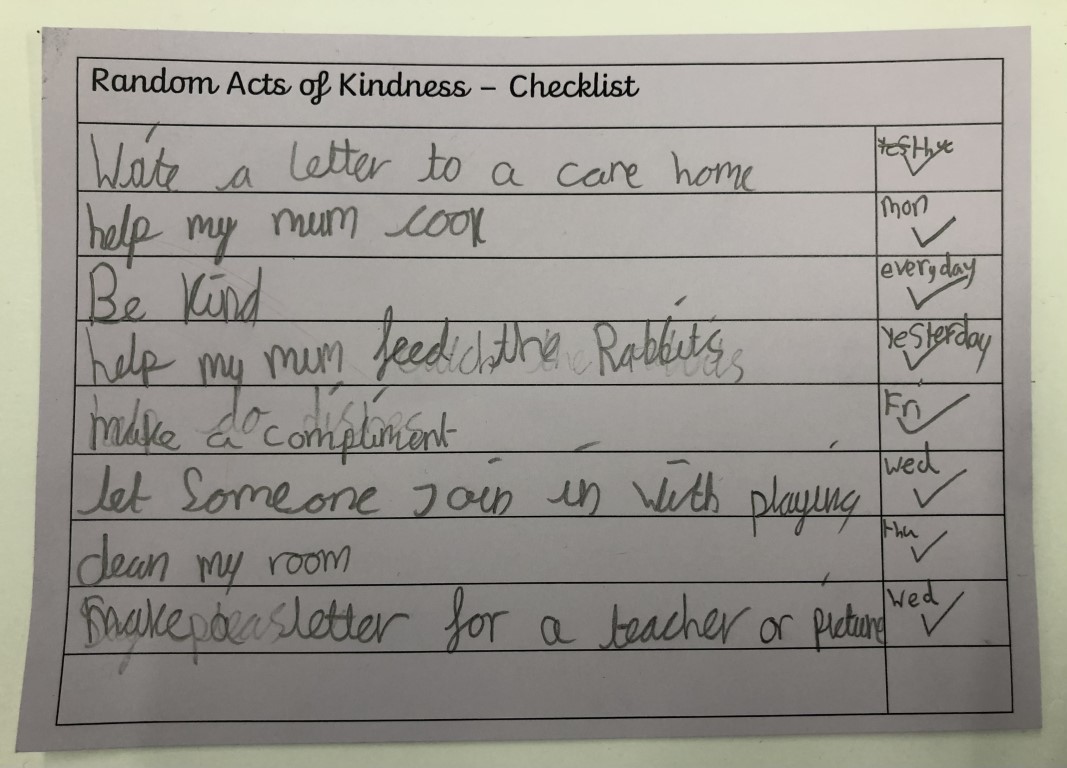 Random Acts of Kindness – Checklist
Write a letter to a care home
help my mum cook mon
Be Kind everyday
help my mum feed the Rabbits yesterday
make a compliment Fri
let Someone Join in with playing wed
clean my room thu
make letter for a teacher or picture wed